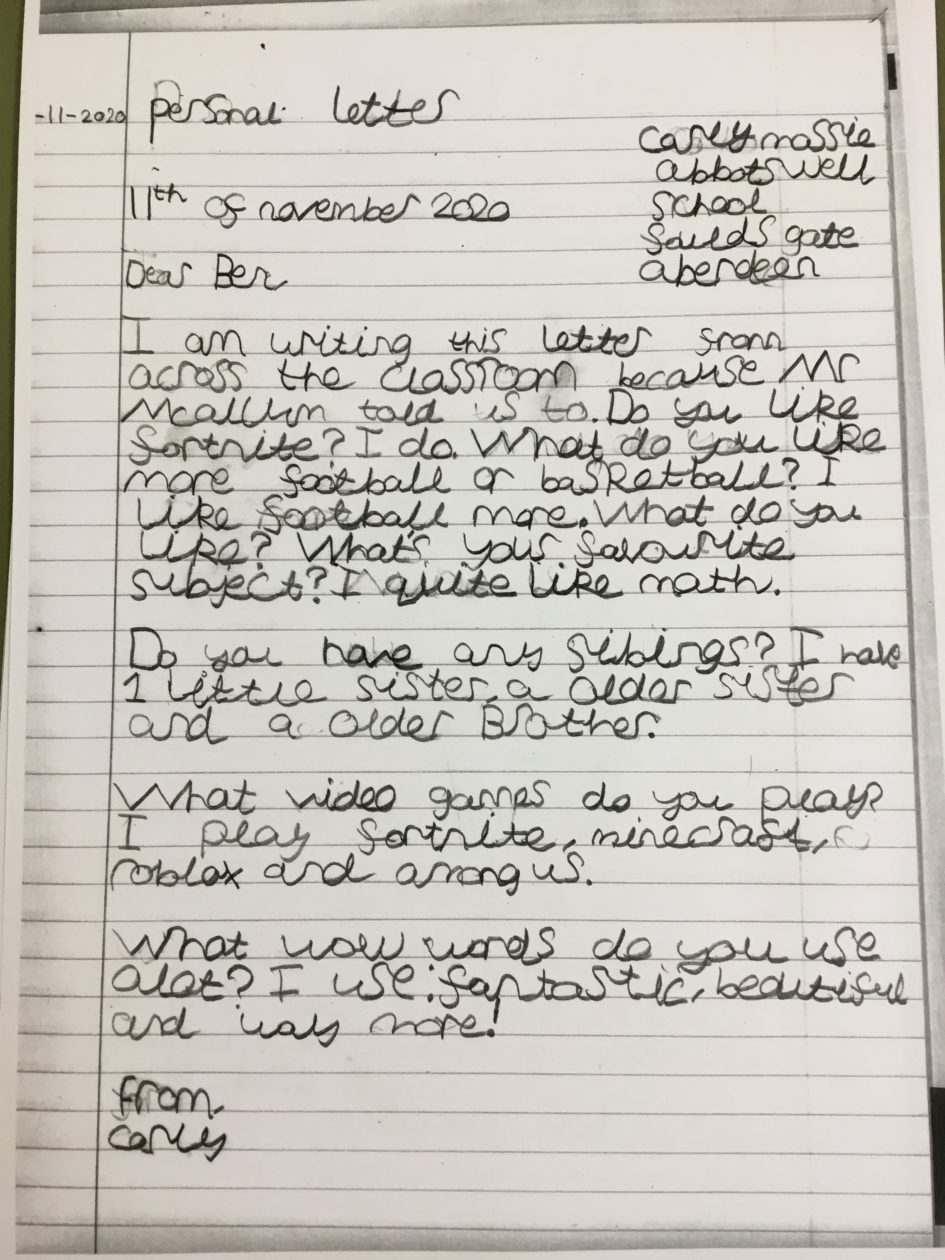 -11-2020 personal letter
carly massie
abbotswell
school
faulds gate
aberdeen
11th of november 2020
Dear Ben
I am writing this letter from
across the classroom because Mr
Mcallum told us to. Do you like
fortnite? I do. What do you like
more football or basketball? I
like football more. What do you
like? What's your favourite
subject? I quite like math.
Do you have any siblings? I have
1 little sister, a older sister
and a older Brother.
What video games do you play?
I play fortnite, minecraft,
roblox and among us.
What wow words do you use
alot? I use: fantastic, beautiful
and way more!
from
carly